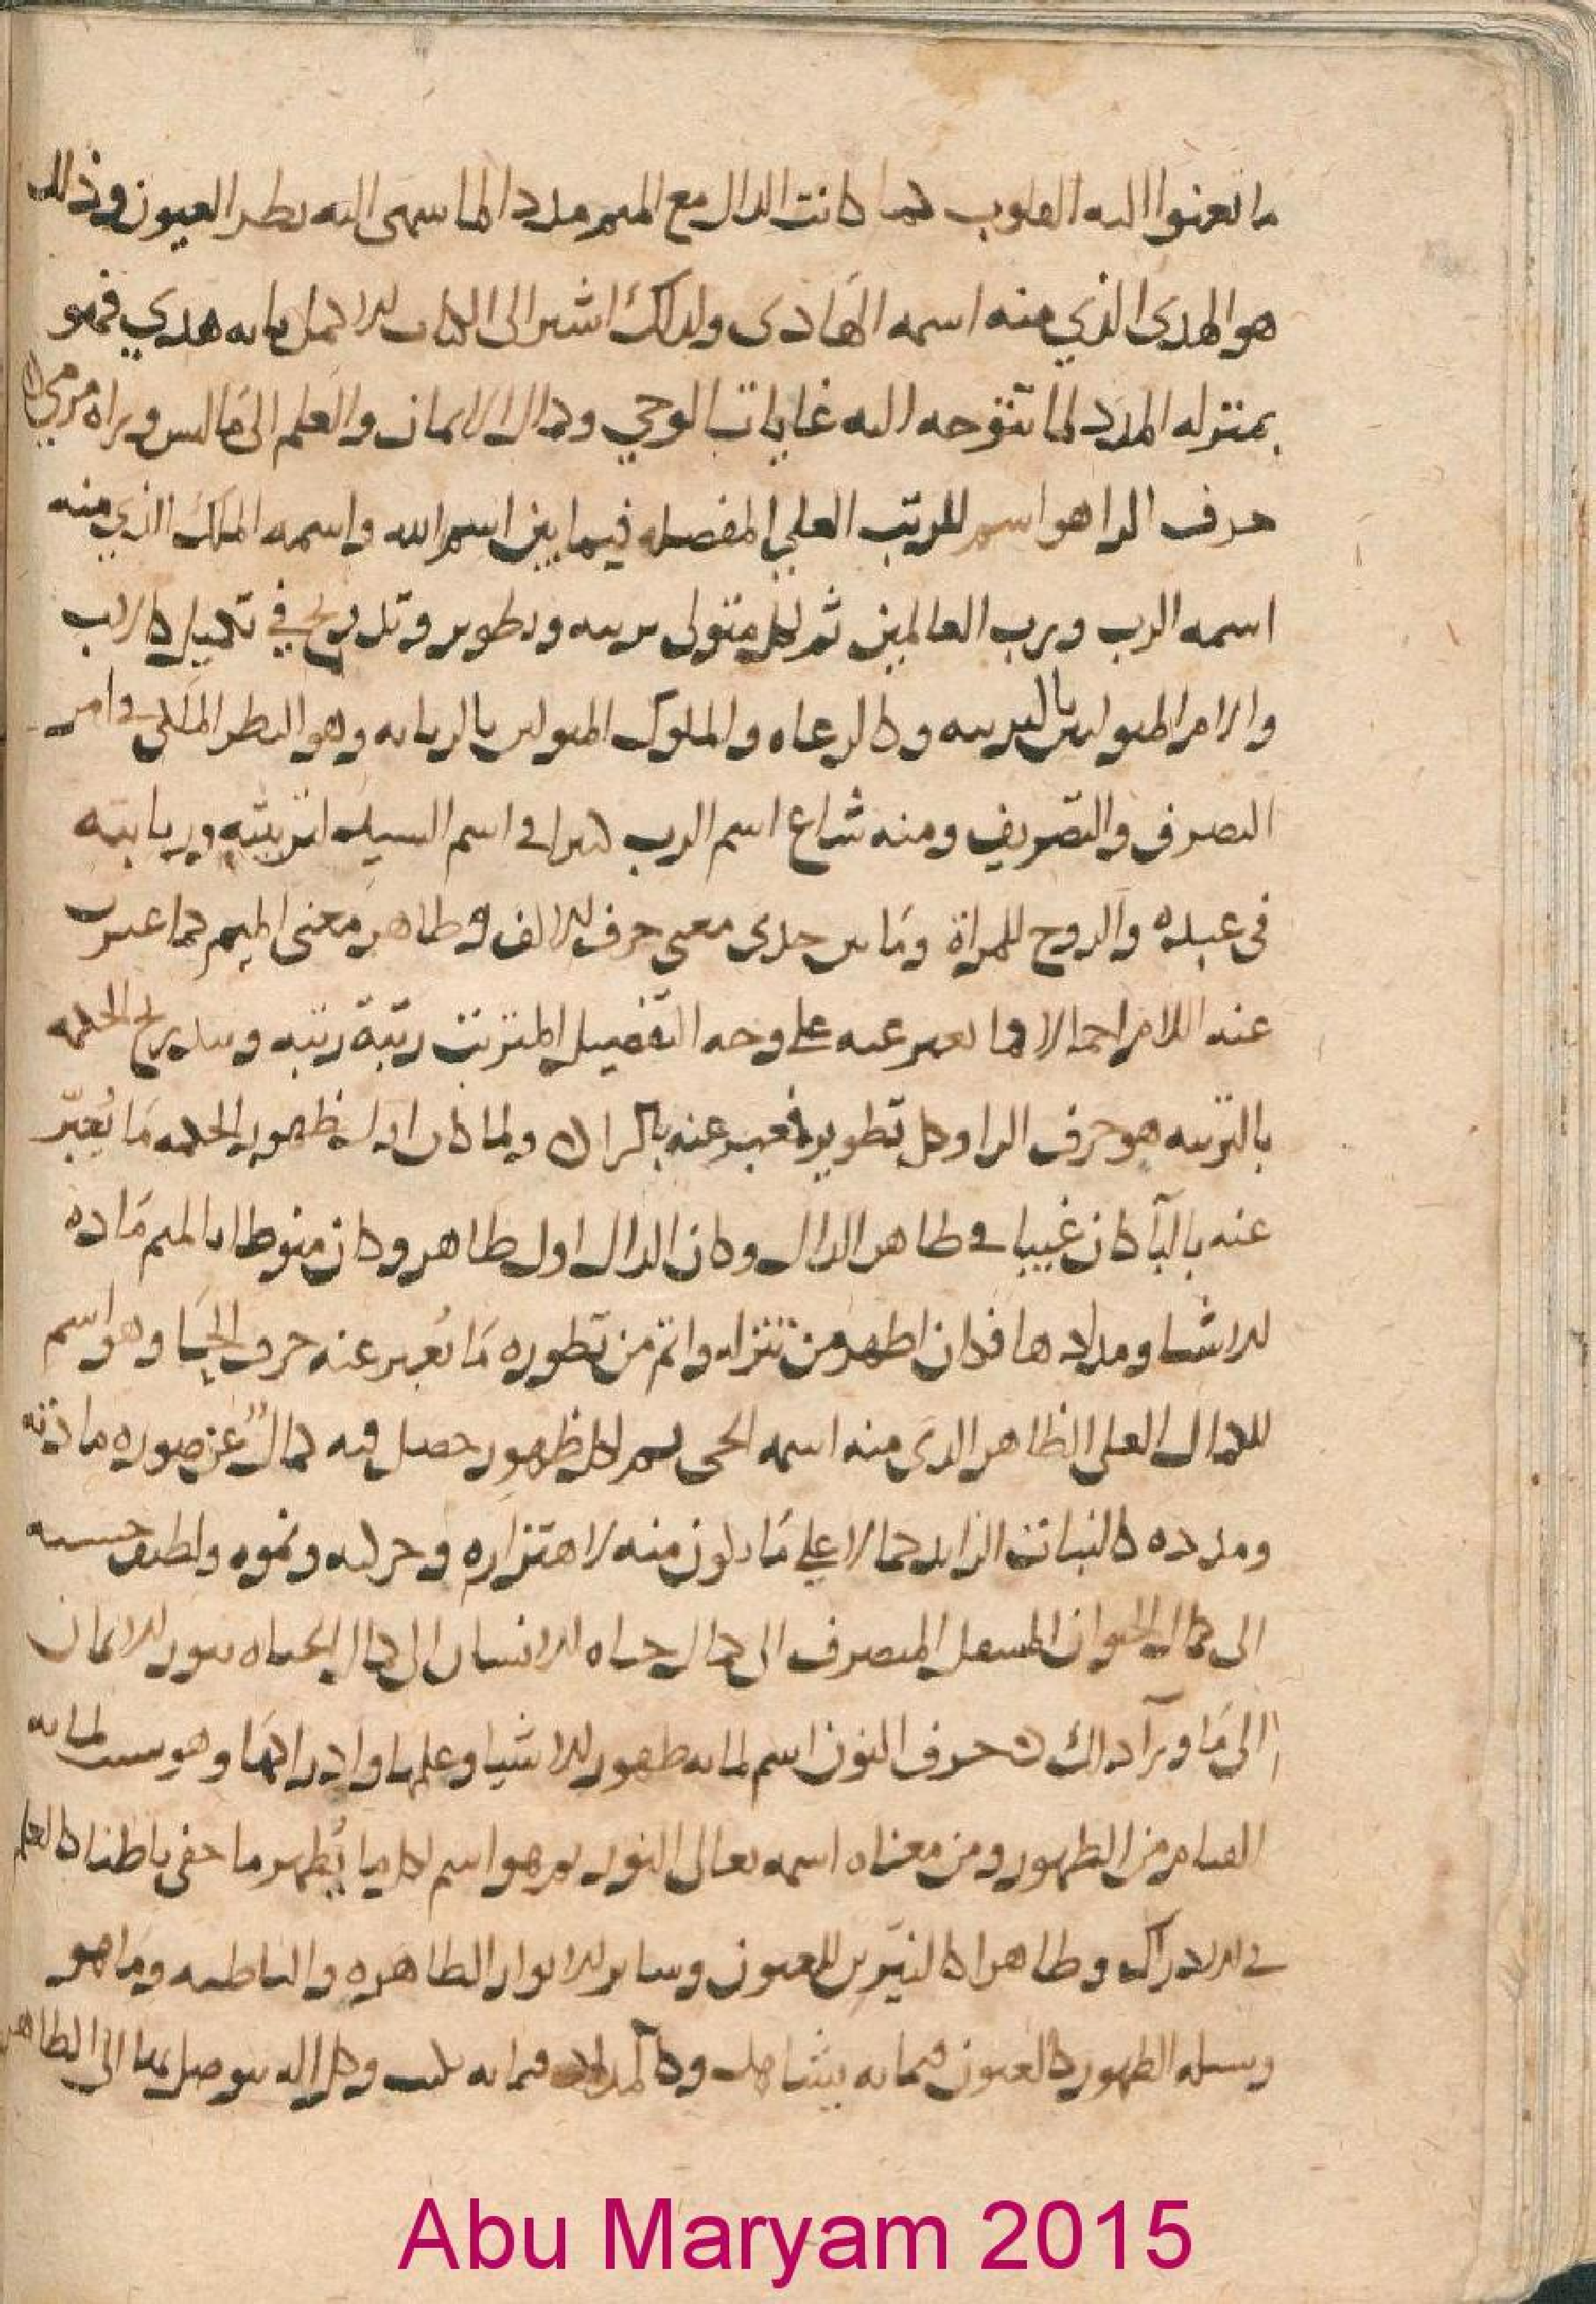 ما تعنوا اليه القلوب كما كانت الدال مع الميم مددا لما سهى اليه نظر العيون وذلك
هو الهدى الذي منه اسمه الهادى ولذلك اشير الى الكتاب الاكمل بانه هدي فهو
بمنزله المدد لما تتوجه اليه غايات الوحي وكمال الايمان والعلم الى ما ليس وراه مرمي
حرف الرا هو اسم للرتب العلي المفصله فيما بين اسم الله واسمه الملك الذي منه
اسمه الرب ورب العالمين ثم لكل متولى تربيه وتطوير وتدريج في تكميل كالاب
والام المتوليين بالتربيه وكالرعاه والملوك المتولين بالربابه وهو النظر الملكي في امر
التصرف والتصريف ومنه شاع اسم الرب كثيرا في اسم السيد لتربيته وربابيته
في عبده والزوج للمراة وما بين حدي معني حرف الالف وظاهر معنى الميم كما عبرت
عنه اللام اجمالا فما يعبر عنه علي وجه التفصيل المترتب رتبة رتبه وتدريج الحكمه
بالتربيه هو حرف الرا وكل تطوير فيعبر عنه بالرا ولما كان اول ظهور الحكمه ما يعبّر
عنه بالبا كان غيبا في ظاهر الدال وكان الدال اول ظاهر وكان منوطا بالميم ماده
للاشيا ومدادها فكان اظهر من تنزله واتم من تطوره ما يعبر عنه حرف الحيا وهو اسم
للكمال العلي الظاهر الذي منه اسمه الحي ثم لكل ظهور حصل فيه كمال عن صوره مادته
ومدده كالنبات الزايد كمالا علي ما تكون منه لاهتزازه وحركته ونموه ولطف حسه
الى كمال الحيوان المتصرف الى كمال حياه الانسان الى كمال الحياه بنور الايمان
الى ما ورآ ذلك حرف النون اسم لما به ظهور الاشيا وعلمها وادراكها وهو لما به
القيام من الظهور ومن معناه اسمه تعالى النور ثم هو اسم لكل ما يُظهر ما خفي باطنا كالعلم
في الادراك وظاهرا كالنيّرين للعيون وساير الانوار الظاهره والباطنه وما هو
وسيله الظهور كالعيون فيما به يشاهد وكالمداد فيما به يكتب وكل اله يتوصل بها الى الظاهر
Abu Maryam 2015